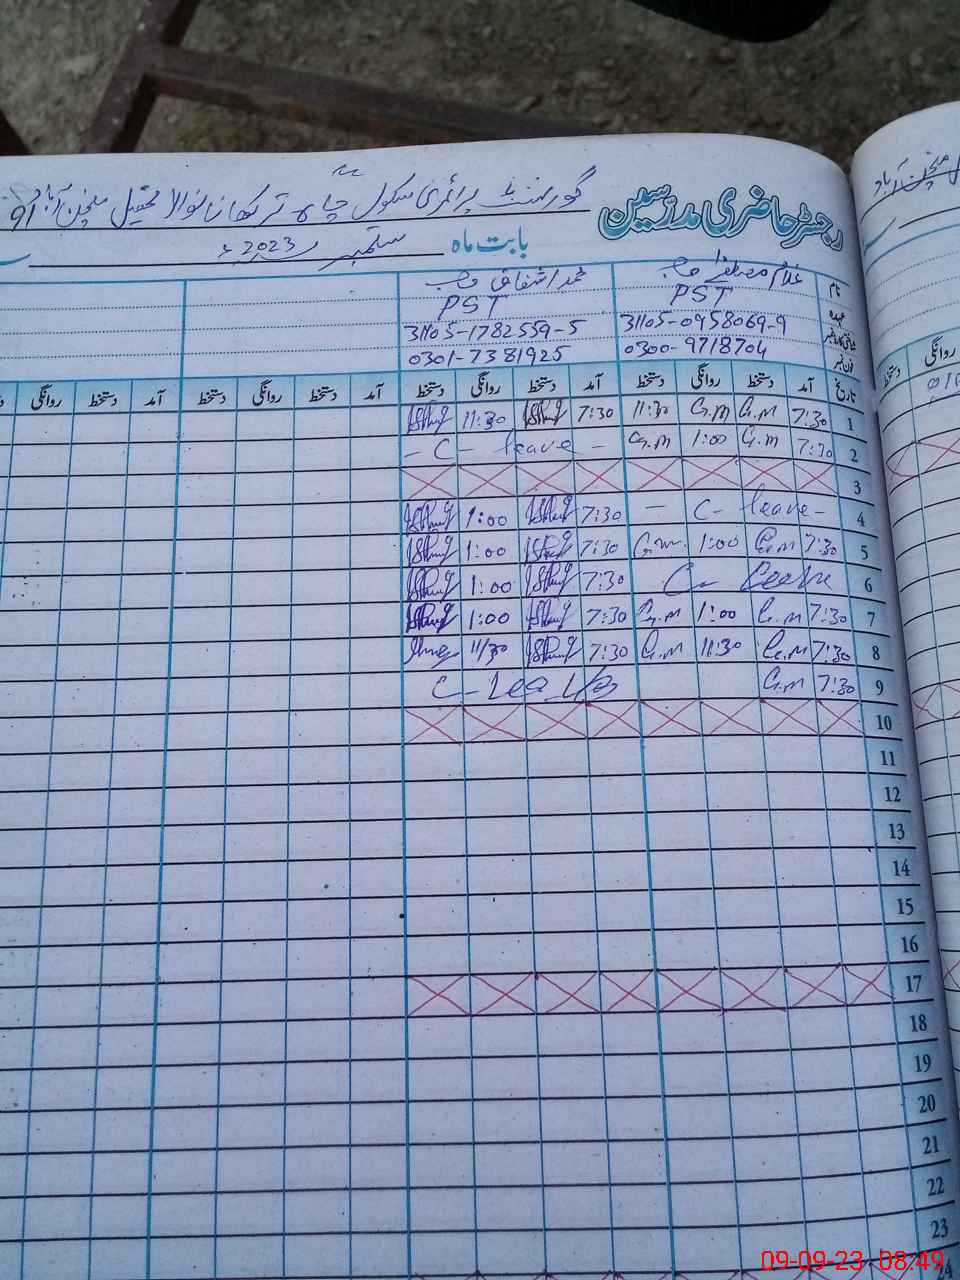 رجسٹر حاضری مدرسین گورنمنٹ پرائمری سکول چاہ ترکھانانوالا تحصیل منچن آباد
بابت ماہ ستمبر 2023ء
نام غلام مصطفےٰ صاحب محمد اشفاق صاحب
عہدہ PST PST
شناختی کارڈ نمبر 31105-0958069-9 31105-1782559-5
فون نمبر 0300-9718704 0301-7381925
تاریخ آمد دستخط روانگی دستخط آمد دستخط روانگی دستخط آمد دستخط روانگی دستخط آمد دستخط روانگی
1 7:30 G.M G.M 11:30 7:30 11:30
2 7:30 G.M 1:00 G.M - C - leave -
3
4 - C- leave - 7:30 1:00
5 7:30 G.M 1:00 G.M 7:30 1:00
6 C- Leave 7:30 1:00
7 7:30 G.M 1:00 G.M 7:30 1:00
8 7:30 G.M 11:30 G.M 7:30 11/30
9 7:30 G.M C-Leave
10
11
12
13
14
15
16
17
18
19
20
21
22
23
24
منچن آباد
روانگی دستخط
09-09-23 08:49